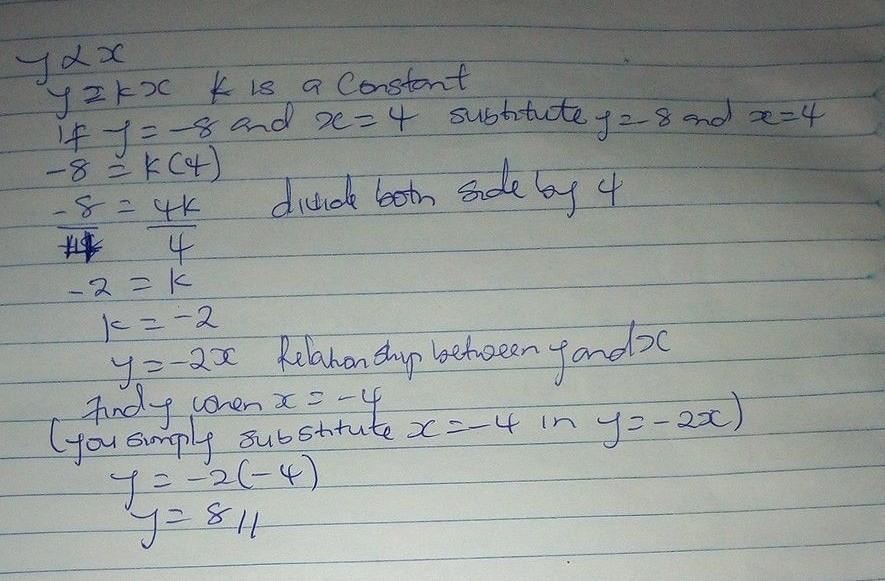 y ∝ x
y = kx k is a constant
If y = -8 and x = 4 substitute y = -8 and x = 4
-8 = k(4)
-8 = 4k divide both side by 4
4 4
-2 = k
k = -2
y = -2x Relationship between y and x
Find y when x = -4
(you simply substitute x = -4 in y = -2x)
y = -2(-4)
y = 8 //